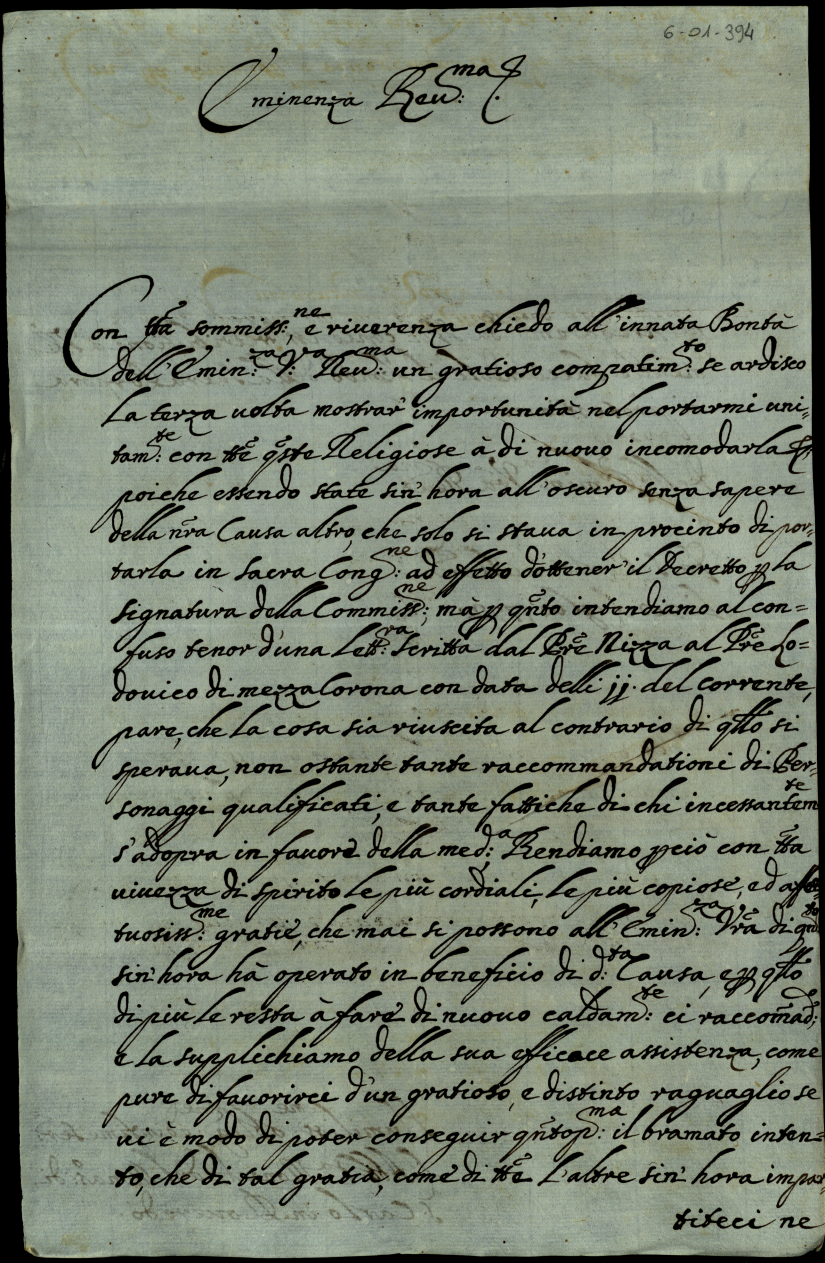 6-01-394
Eminenza Reu:ma
Con tta sommiss:ne, e riuerenza chiedo all'innata Bontà
dell'Emin:za V:ra Reu:ma un gratioso compatim:to se ardisco
la terza uolta mostrar' importunità nel portarmi uni=
tam:te con tte qste Religiose à di nuouo incomodarla
poiche essendo state sin' hora all'oscuro senza sapere
della nra Causa altro, che solo si staua in procinto di por=
tarla in Sacra Cong:ne ad effetto d'ottener' il Decretto p la
signatura della Commiss:ne; mà p qnto intendiamo al con=
fuso tenor d'una lett:ra scritta dal Pre Nizza al Pre Lo=
douico di mezzaCorona con data delli jj. del corrente,
pare, che la cosa sia riuscita al contrario di qllo si
speraua, non ostante tante raccommandationi di Per=
sonaggi qualificati, e tante fattiche di chi incessantem:te
s'adopra in fauore della med:a Rendiamo pciò con tta
uiuezza di spirito le più cordiali, le più copiose, ed affet=
tuosiss:me gratie, che mai si possono all'Emin:za Vra di qnto
sin' hora hà operato in beneficio di d:ta Causa, e p qllo
di più le resta à fare di nuouo caldam:te ci raccomad:o
e la supplichiamo della sua efficace assistenza, come
pure di fauorirci d'un gratioso, e distinto raguaglio se
ui è modo di poter conseguir qntop:ma il bramato inten=
to, che di tal gratia, come di tte l'altre sin' hora impar=
titeci ne